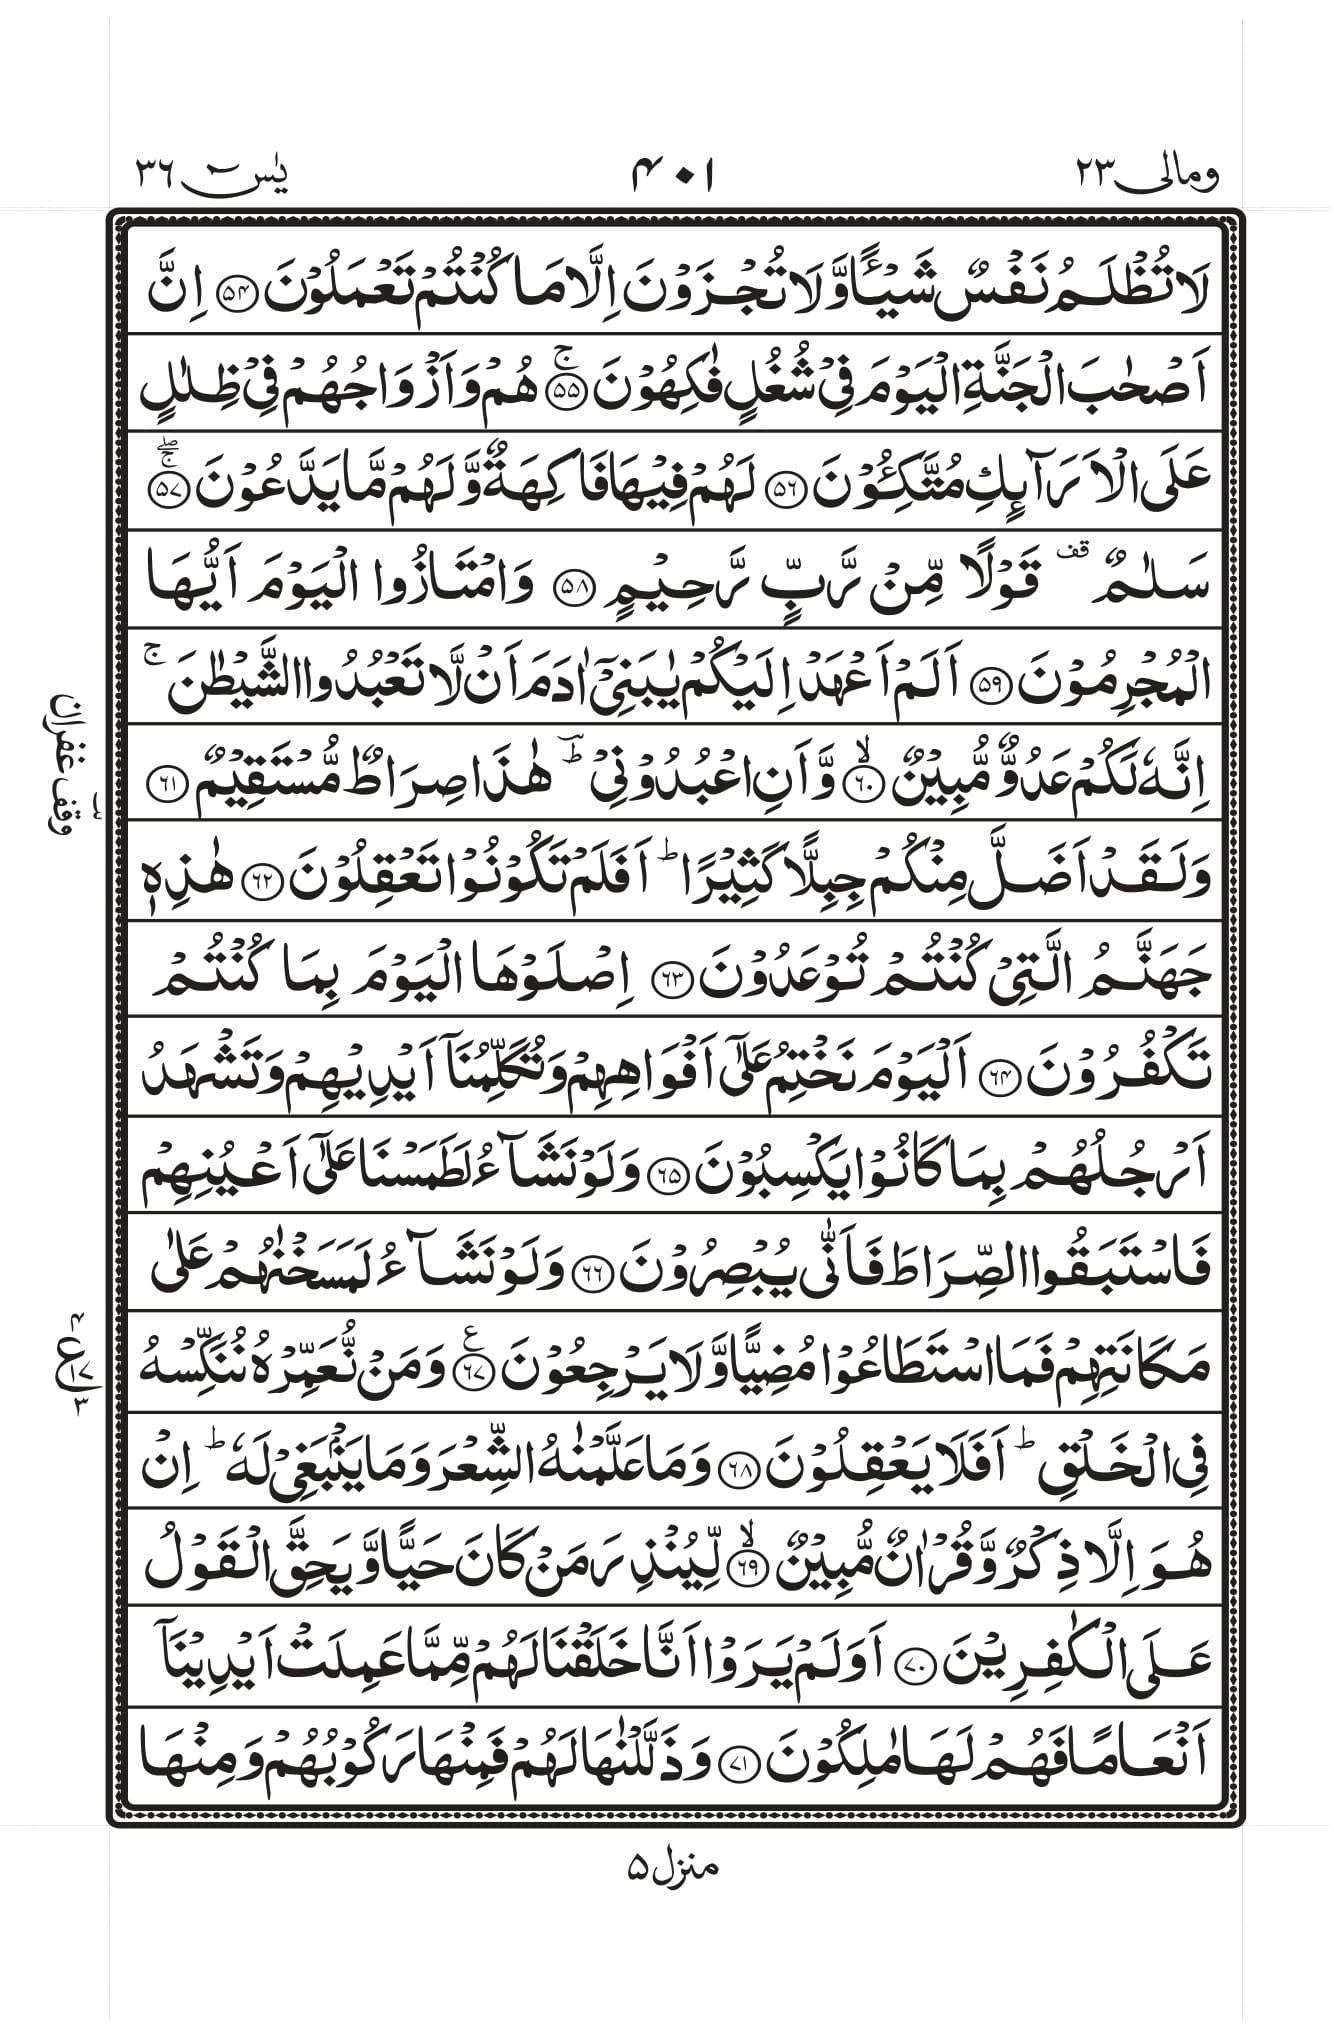 ومالی ٢٣
۴٠١
یٰسٓ ٣٦
لَا تُظۡلَمُ نَفۡسٌ شَيۡـًٔا وَّلَا تُجۡزَوۡنَ اِلَّا مَا كُنۡتُمۡ تَعۡمَلُوۡنَ ﴿۵۴﴾ اِنَّ
اَصۡحٰبَ الۡجَنَّةِ الۡيَوۡمَ فِىۡ شُغُلٍ فٰكِهُوۡنَ ۚ﴿۵۵﴾ هُمۡ وَاَزۡوَاجُهُمۡ فِىۡ ظِلٰلٍ
عَلَى الۡاَرَآٮِٕكِ مُتَّكِـُٔوۡنَ ﴿۵۶﴾ لَهُمۡ فِيۡهَا فَاكِهَةٌ وَّلَهُمۡ مَّا يَدَّعُوۡنَ ۚۖ﴿۵۷﴾
سَلٰمٌ قف قَوۡلًا مِّنۡ رَّبٍّ رَّحِيۡمٍ ﴿۵۸﴾ وَامۡتَازُوا الۡيَوۡمَ اَيُّهَا
الۡمُجۡرِمُوۡنَ ﴿۵۹﴾ اَلَمۡ اَعۡهَدۡ اِلَيۡكُمۡ يٰبَنِىۡۤ اٰدَمَ اَنۡ لَّا تَعۡبُدُوا الشَّيۡطٰنَ ۚ
اِنَّهٗ لَكُمۡ عَدُوٌّ مُّبِيۡنٌ ۙ﴿۶۰﴾ وَّاَنِ اعۡبُدُوۡنِىۡ ؕ هٰذَا صِرَاطٌ مُّسۡتَقِيۡمٌ ﴿۶۱﴾
وَلَقَدۡ اَضَلَّ مِنۡكُمۡ جِبِلًّا كَثِيۡرًا ؕ اَفَلَمۡ تَكُوۡنُوۡا تَعۡقِلُوۡنَ ﴿۶۲﴾ هٰذِهٖ
جَهَنَّمُ الَّتِىۡ كُنۡتُمۡ تُوۡعَدُوۡنَ ﴿۶۳﴾ اِصۡلَوۡهَا الۡيَوۡمَ بِمَا كُنۡتُمۡ
تَكۡفُرُوۡنَ ﴿۶۴﴾ اَلۡيَوۡمَ نَخۡتِمُ عَلٰٓى اَفۡوَاهِهِمۡ وَتُكَلِّمُنَاۤ اَيۡدِيۡهِمۡ وَتَشۡهَدُ
اَرۡجُلُهُمۡ بِمَا كَانُوۡا يَكۡسِبُوۡنَ ﴿۶۵﴾ وَلَوۡ نَشَآءُ لَطَمَسۡنَا عَلٰٓى اَعۡيُنِهِمۡ
فَاسۡتَبَقُوا الصِّرَاطَ فَاَنّٰى يُبۡصِرُوۡنَ ﴿۶۶﴾ وَلَوۡ نَشَآءُ لَمَسَخۡنٰهُمۡ عَلٰى
مَكَانَتِهِمۡ فَمَا اسۡتَطَاعُوۡا مُضِيًّا وَّلَا يَرۡجِعُوۡنَ ﴿۶۷﴾ ع وَمَنۡ نُّعَمِّرۡهُ نُنَكِّسۡهُ
فِى الۡخَلۡقِ ؕ اَفَلَا يَعۡقِلُوۡنَ ﴿۶۸﴾ وَمَا عَلَّمۡنٰهُ الشِّعۡرَ وَمَا يَنۡۢبَغِىۡ لَهٗ ؕ اِنۡ
هُوَ اِلَّا ذِكۡرٌ وَّقُرۡاٰنٌ مُّبِيۡنٌ ۙ﴿۶۹﴾ لِّيُنۡذِرَ مَنۡ كَانَ حَيًّا وَّيَحِقَّ الۡقَوۡلُ
عَلَى الۡكٰفِرِيۡنَ ﴿۷۰﴾ اَوَلَمۡ يَرَوۡا اَنَّا خَلَقۡنَا لَهُمۡ مِّمَّا عَمِلَتۡ اَيۡدِيۡنَاۤ
اَنۡعَامًا فَهُمۡ لَهَا مٰلِكُوۡنَ ﴿۷۱﴾ وَذَلَّلۡنٰهَا لَهُمۡ فَمِنۡهَا رَكُوۡبُهُمۡ وَمِنۡهَا
وقف غفران
۴
ع
۱۷
۳
منزل ۵